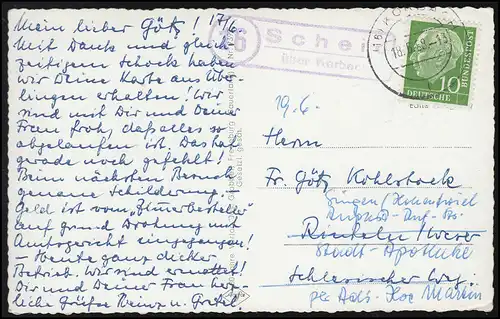 Mein lieber Götz! 17/6
Mit Dank und gleich-
zeitigem Schock haben
wir Deine Karte aus Über-
lingen erhalten! Wir
sind mit Dir und Deiner
Frau froh, daß alles so
abgelaufen ist. Das hat
gerade noch gefehlt!
Beim nächsten Besuch
genaue Schilderung. –
Geld ist vom
auf Grund Drohung mit
Amtsgericht eingegangen!
– Heute ganz dicker
Betrieb. Wir sind ermattet!
Dir und Deiner Frau herz-
liche Grüße Heinz u. Gretel.
16
Schei
über Korbac
10
DEUTSCHE
BUNDESPOST
19.6.
Herrn
Fr. Götz Kohlstock
Singen/Hohentwiel
Rinteln/Weser
Stadt-Apotheke
Schlesischer Weg